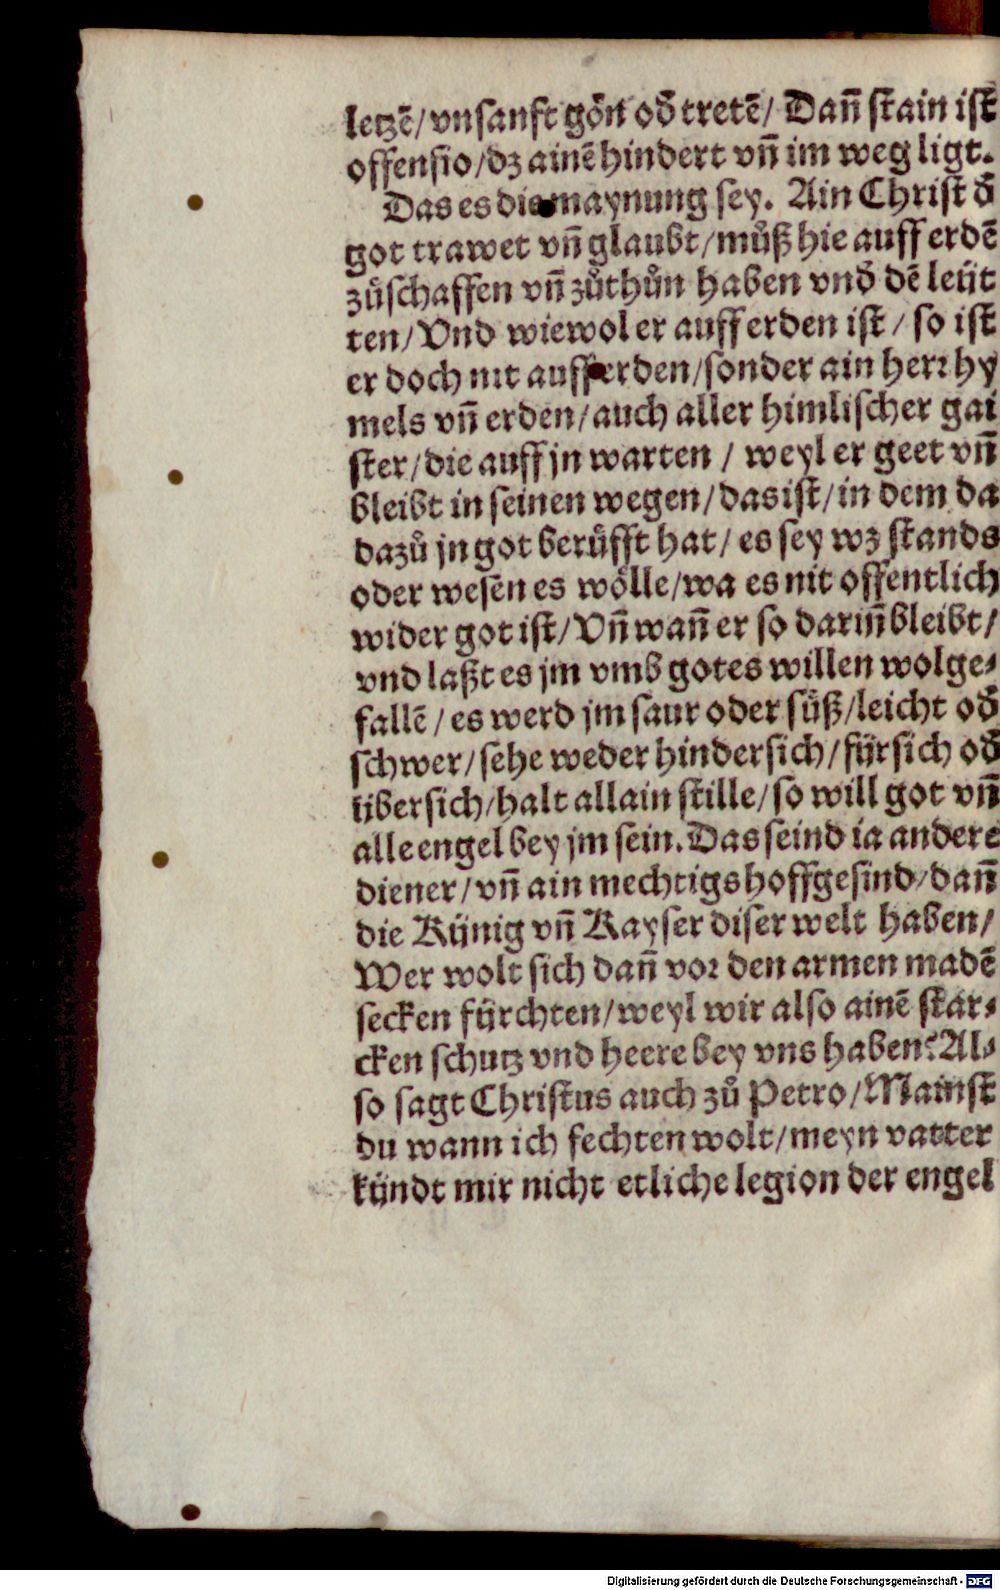 letzē/vnsanft gön od̄ tretē/ Dañ stain ist
offensio/dz ainē hindert vñ im weg ligt.
Das es die maynung sey. Ain Christ d̄
got trawet vñ glaubt/můß hie auff erdē
zůschaffen vñ zůthůn haben vnd̄ dē leüt
ten/Vnd wiewol er auff erden ist/ so ist
er doch nit auff erden/sonder ain herr hy
mels vñ erden/auch aller himlischer gai
ster/die auff jn warten / weyl er geet vñ
bleibt in seinen wegen/das ist/in dem da
dazů jn got berüfft hat/ es sey wz stands
oder wesen es wölle/wa es nit offentlich
wider got ist/Vñ wañ er so dariñ bleibt/
vnd laßt es jm vmb gotes willen wolge⸗
fallē/es werd jm saur oder süß/leicht od̄
schwer/sehe weder hindersich/fürsich od̄
übersich/halt allain stille/so will got vñ
alle engel bey jm sein. Das seind ia andere
diener/vñ ain mechtigs hoffgesind/dañ
die Künig vñ Kayser diser welt haben/
Wer wolt sich dañ vor den armen madē
secken fürchten/weyl wir also ainē star⸗
cken schutz vnd heere bey vns haben? Al⸗
so sagt Christus auch zů Petro/Mainst
du wann ich fechten wolt/meyn vatter
kündt mir nicht etliche legion der engel
Digitalisierung gefördert durch die Deutsche Forschungsgemeinschaft - DFG